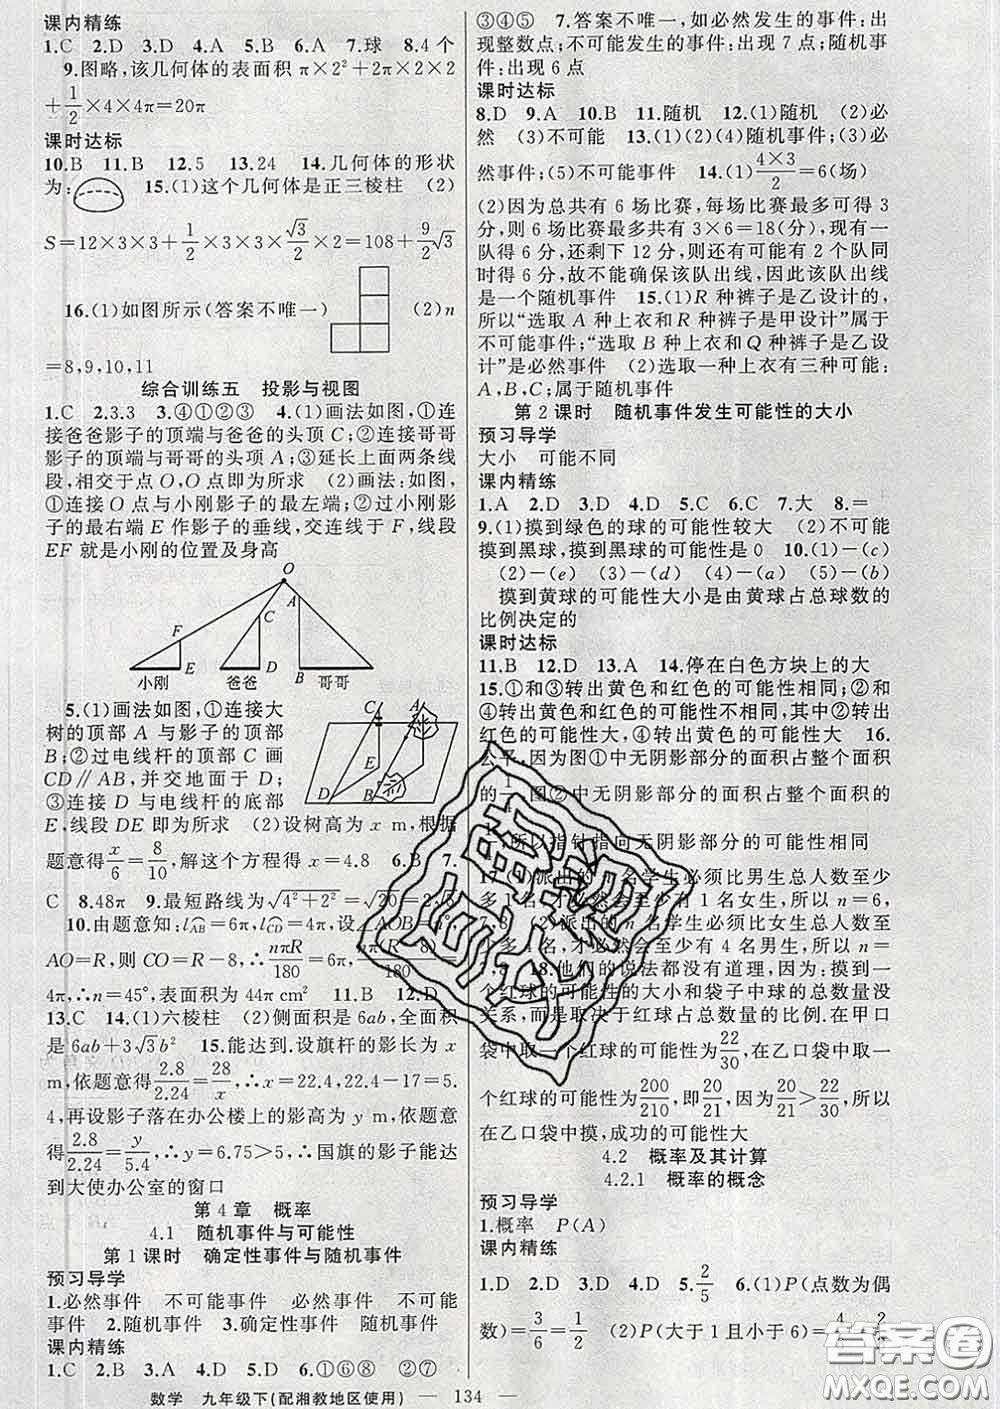 课内精练
1.C 2.D 3.D 4.A 5.B 6.A 7.球 8.4个
9.图略,该几何体的表面积π×2²+2π×2×2
+1/2×4×4π=20π
课时达标
10.B 11.B 12.5 13.24 14.几何体的形状
为: 15.(1)这个几何体是正三棱柱 (2)
S=12×3×3+1/2×3×3×√3/2×2=108+9/2√3
16.(1)如图所示(答案不唯一) (2)n
=8,9,10,11
综合训练五 投影与视图
1.C 2.3.3 3.④①②③ 4.(1)画法如图,①连
接爸爸影子的顶端与爸爸的头顶C;②连接哥哥
影子的顶端与哥哥的头项A;③延长上面两条线
段,相交于点O,O点即为所求 (2)画法:如图,
①连接O点与小刚影子的最左端;②过小刚影子
的最右端E作影子的垂线,交连线于F,线段
EF就是小刚的位置及身高
O
A
C
F
E D B
小刚 爸爸 哥哥
5.(1)画法如图,①连接大
树的顶部A与影子的顶部
B;②过电线杆的顶部C画
CD∥AB,并交地面于D;
③连接D与电线杆的底部
E,线段DE即为所求 (2)设树高为x m,根据
C A
E
D B
题意得x/6=8/10,解这个方程得x=4.8 6.B 7.
C 8.48π 9.最短路线为√(4²+2²)=√20=2√5
10.由题意知:l⌒AB=6π,l⌒CD=4π,设∠AOB=n°,
AO=R,则CO=R-8,∴nπR/180=6π,nπ(R-8)/180=
4π,∴n=45°,表面积为44π cm² 11.B 12.D
13.C 14.(1)六棱柱 (2)侧面积是6ab,全面积
是6ab+3√3b² 15.能达到.设旗杆的影长为x
m,依题意得2.8/2.24=28/x,∴x=22.4,22.4-17=5.
4,再设影子落在办公楼上的影高为y m,依题意
得2.8/2.24=y/5.4,∴y=6.75>5,∴国旗的影子能达
到大使办公室的窗口
第4章 概率
4.1 随机事件与可能性
第1课时 确定性事件与随机事件
预习导学
1.必然事件 不可能事件 必然事件 不可能
事件 2.随机事件 3.确定性事件 随机事件
课内精练
1.C 2.B 3.B 4.A 5.B 6.①⑥⑧ ②⑦
③④⑤ 7.答案不唯一,如必然发生的事件:出
现整数点;不可能发生的事件:出现7点;随机事
件:出现6点
课时达标
8.D 9.A 10.B 11.随机 12.(1)随机 (2)必
然 (3)不可能 13.(1)(2)(4)随机事件;(3)必
然事件;(5)不可能事件 14.(1)4×3/2=6(场)
(2)因为总共有6场比赛,每场比赛最多可得3
分,则6场比赛最多共有3×6=18(分),现有一
队得6分,还剩下12分,则还有可能有2个队同
时得6分,故不能确保该队出线,因此该队出线
是一个随机事件 15.(1)R种裤子是乙设计的,
所以“选取A种上衣和R种裤子是甲设计”属于
不可能事件;“选取B种上衣和Q种裤子是乙设
计”是必然事件 (2)选取一种上衣有三种可能:
A,B,C;属于随机事件
第2课时 随机事件发生可能性的大小
预习导学
大小 可能不同
课内精练
1.A 2.D 3.D 4.D 5.C 6.C 7.大 8.=
9.(1)摸到绿色的球的可能性较大 (2)不可能
摸到黑球,摸到黑球的可能性是0 10.(1)-(c)
(2)-(e) (3)-(d) (4)-(a) (5)-(b)
摸到黄球的可能性大小是由黄球占总球数的
比例决定的
课时达标
11.B 12.D 13.A 14.停在白色方块上的大
15.①和③转出黄色和红色的可能性相同;②和
④转出黄色和红色的可能性不相同,其中②转出
红色的可能性大,④转出黄色的可能性大 16.
公平,因为图①中无阴影部分的面积占整个面积
的1/4,图②中无阴影部分的面积占整个面积的
所以指针指向无阴影部分的可能性相同
17.(1)派出的n名学生必须比男生总人数至少
多1名,才必然会至少有1名女生,所以n=6,
7,8 (2)派出的n名学生必须比女生总人数至
少多4名,才必然会至少有4名男生,所以n=
7,8 18.他们的说法都没有道理,因为:摸到一
个红球的可能性的大小和袋子中球的总数量没
关系,而是取决于红球占总数量的比例.在甲口
袋中取一个红球的可能性为22/30,在乙口袋中取一
个红球的可能性为200/210,即20/21,因为20/21>22/30,所以
在乙口袋中摸,成功的可能性大
4.2 概率及其计算
4.2.1 概率的概念
预习导学
1.概率 P(A)
课内精练
1.D 2.D 3.D 4.D 5.2/5 6.(1)P(点数为偶
数)=3/6=1/2 (2)P(大于1且小于6)=4/6=2/3
数学 九年级下(配湘教地区使用) — 134 —
答案圈
MXQE.COM